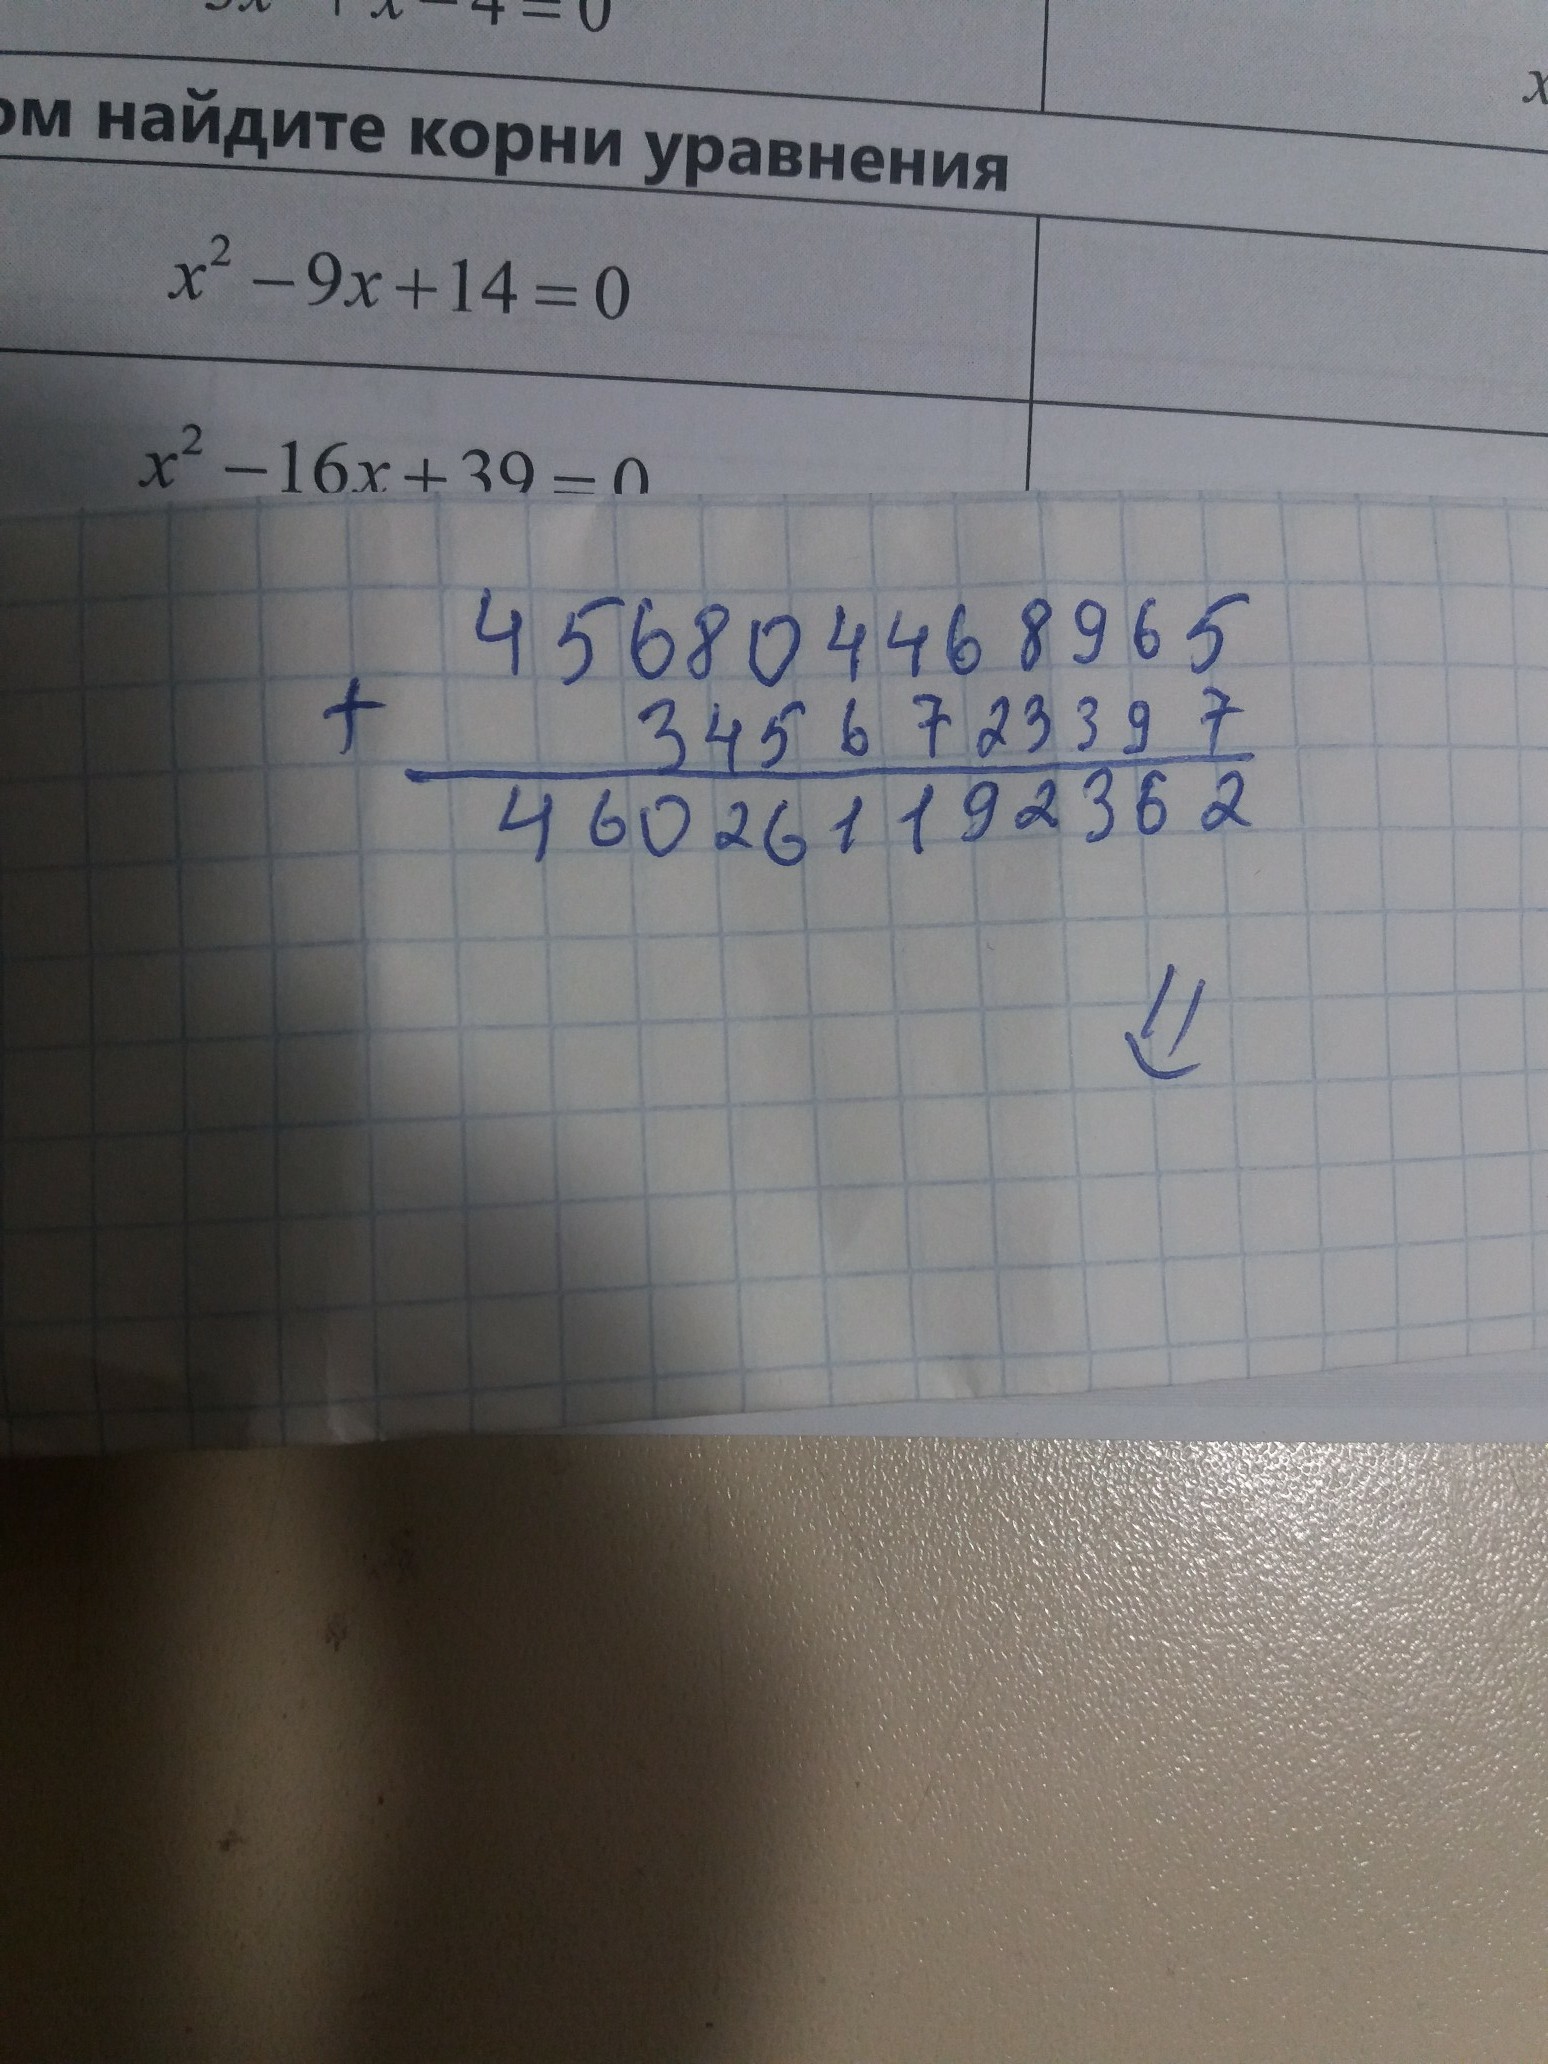 + x − 4 = 0
x
найдите корни уравнения
x² − 9x + 14 = 0
x² − 16x + 39 = 0
456804468965
+ 3456723397
460261192362